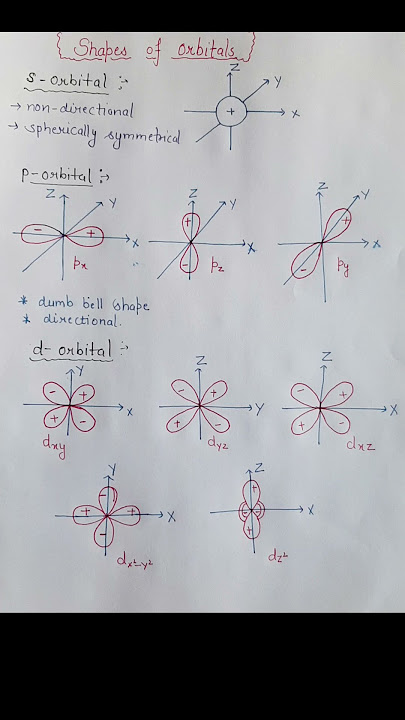 Shapes of orbitals
s-orbital :-
→ non-directional
→ spherically symmetrical
Z
Y
X
+
p-orbital :-
Z
Y
X
-
+
px
Z
Y
X
+
-
pz
Z
Y
X
+
-
py
* dumb bell shape
* directional.
d-orbital :-
Y
X
-
+
+
-
dxy
Z
Y
-
+
+
-
dyz
Z
X
-
+
+
-
dxz
Y
X
-
+
+
-
dx²-y²
Z
X
+
-
-
+
dz²